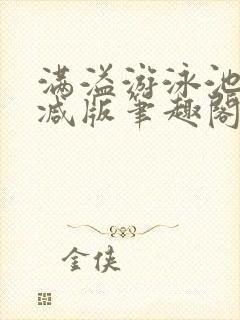 满溢游泳池
减版笔趣阁
金侠